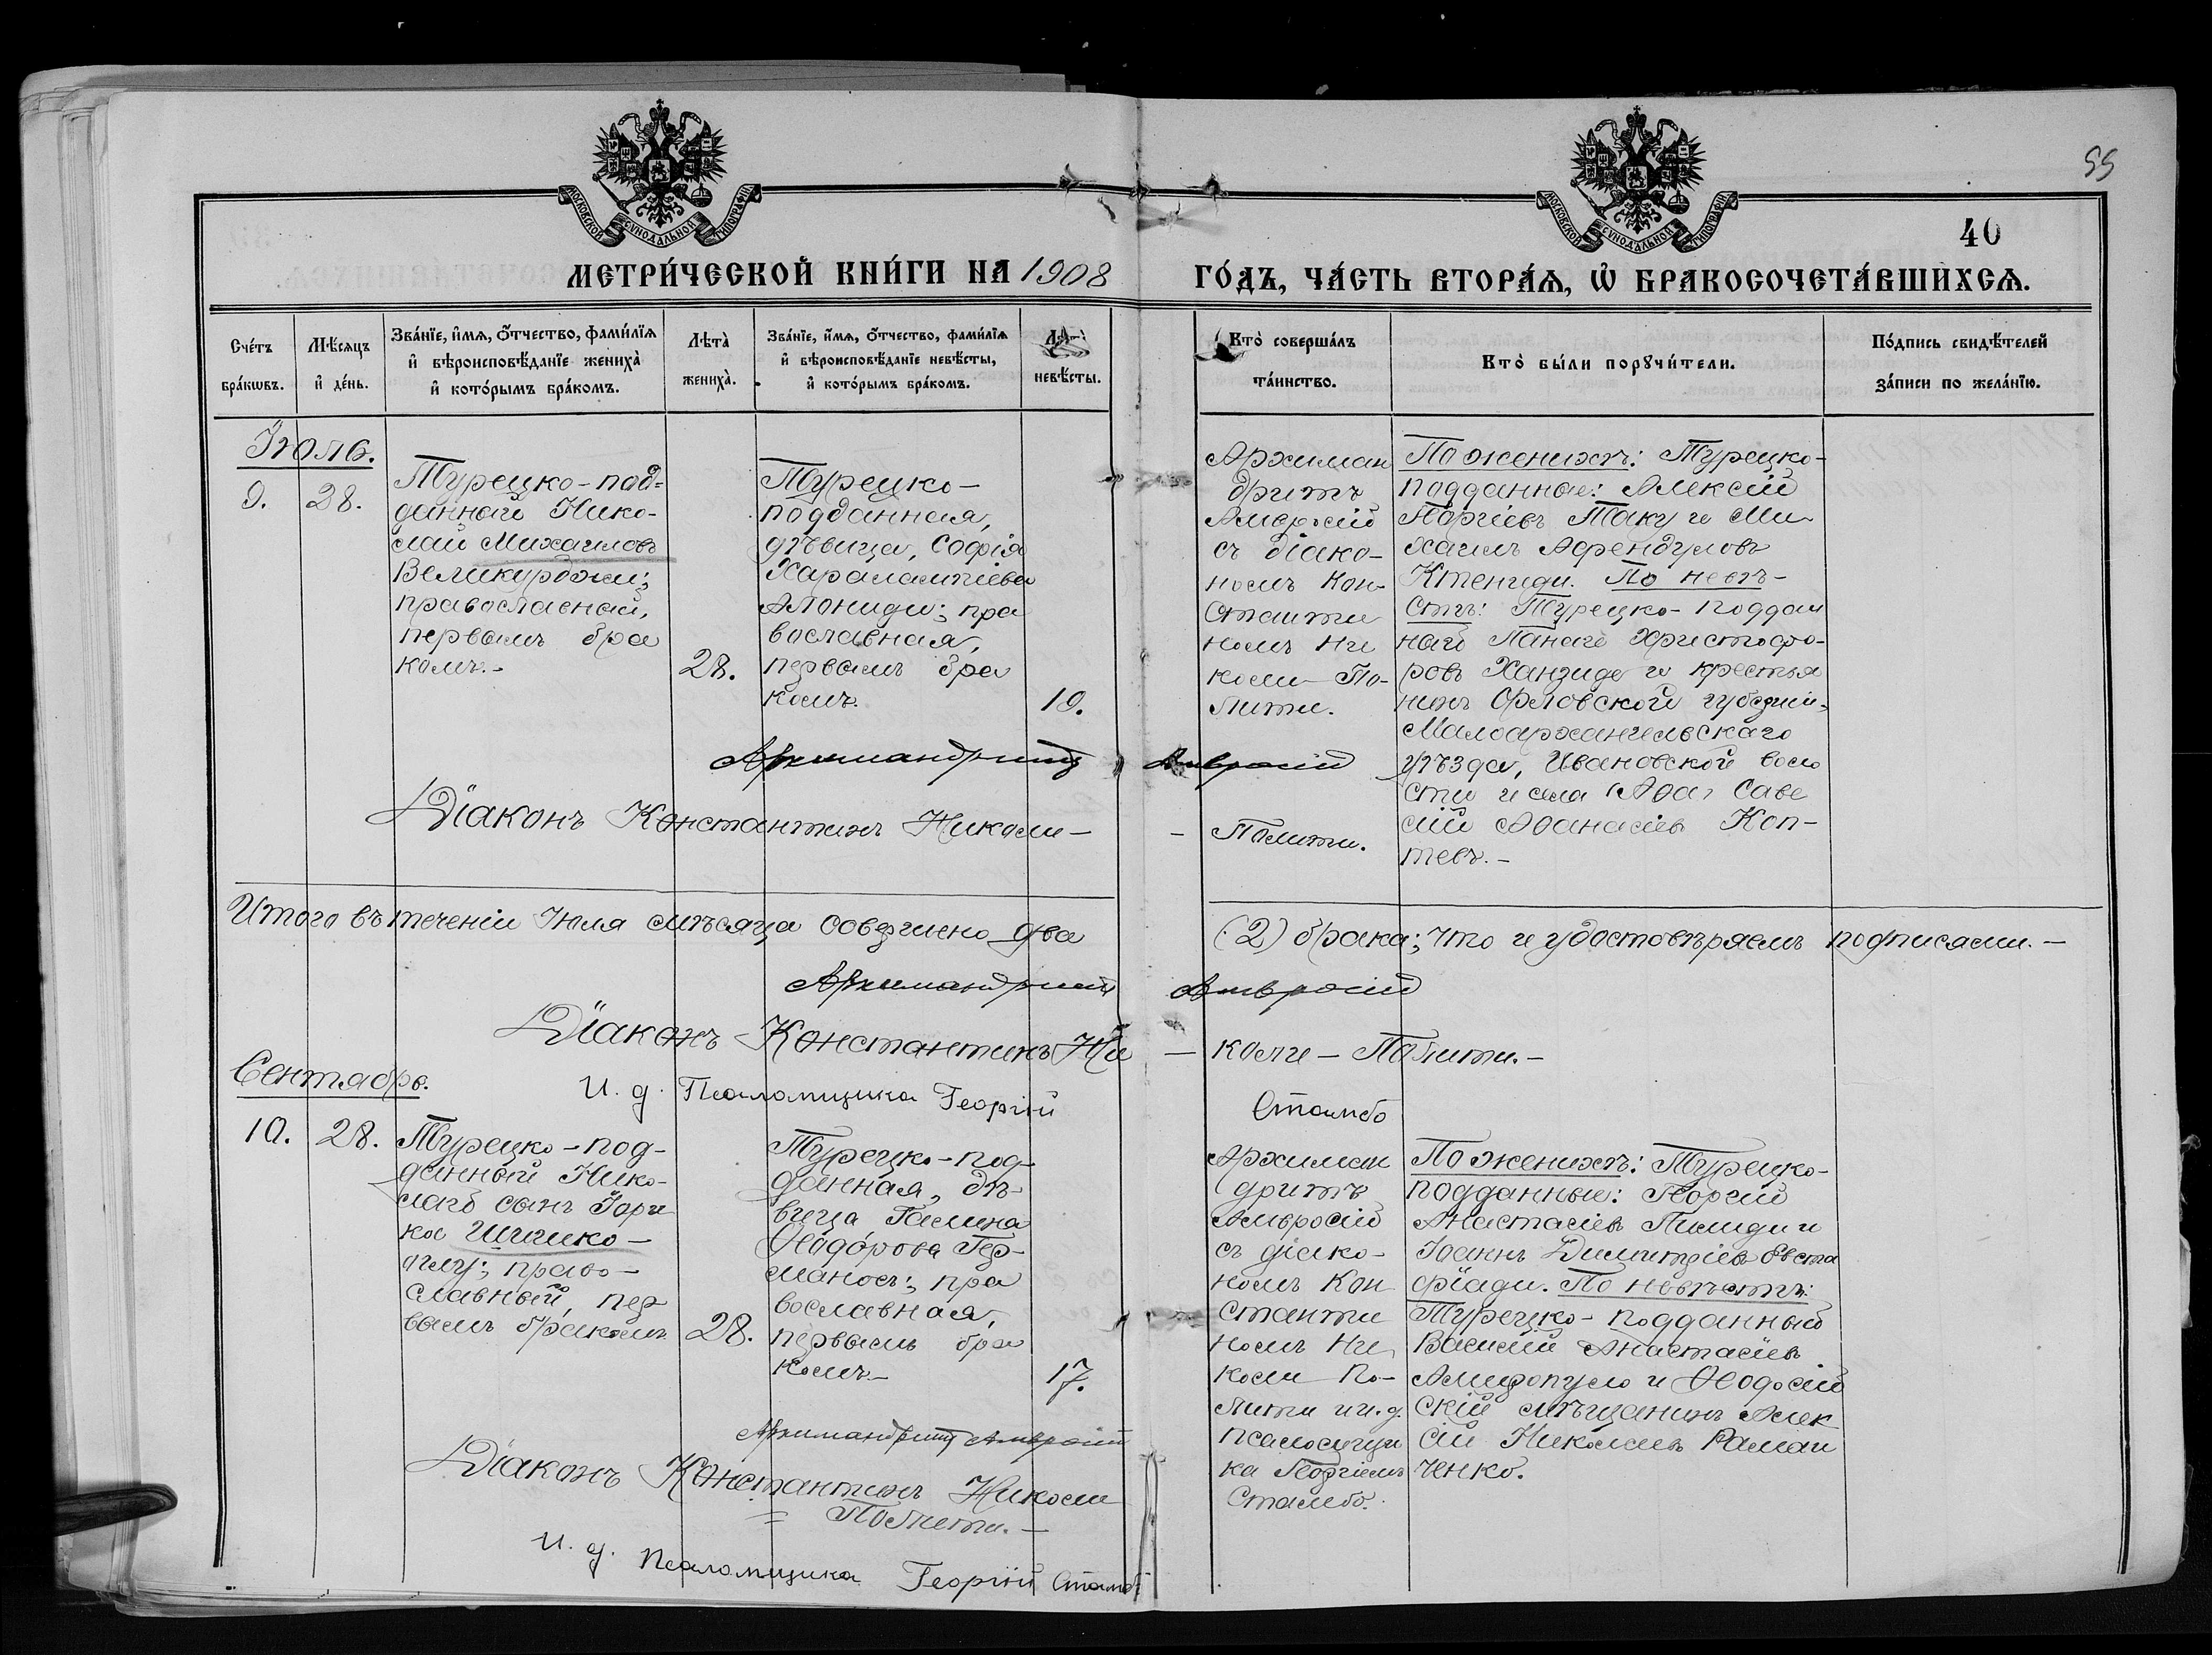 55
40
МОСКОВСКОЙ СУНОДАЛЬНОЙ ТИПОГРАФІИ
МОСКОВСКОЙ СУНОДАЛЬНОЙ ТИПОГРАФІИ
МЕТРИ́ЧЕСКОЙ КНИ́ГИ НА 1908 ГО́ДЪ, ЧА́СТЬ ВТОРА́Ѧ, Ѡ҆ БРАКОСОЧЕТА́ВШИХСѦ.
Сче́тъ бра́кѡвъ.
Мѣ́сѧцъ и҆ де́нь.
Зва́нїе, и҆́мѧ, ѻ҆́тчество, фами́лїѧ
и҆ вѣроисповѣ́данїе жениха̀
и҆ кото́рымъ бра́комъ.
Лѣта̀ жениха̀.
Зва́нїе, и҆́мѧ, ѻ҆́тчество, фами́лїѧ
и҆ вѣроисповѣ́данїе невѣ́сты,
и҆ кото́рымъ бра́комъ.
Лѣта̀ невѣ́сты.
Кто̀ соверша́лъ
та́инство.
Кто̀ бы́ли порꙋчи́тели.
По́дпись свидѣ́телей
за́писи по жела́нїю.
Іюль.
9.
28.
Турецко-под-
данный Нико-
лай Михаиловъ
Великурджи;
православный,
первымъ бра
комъ.-
28.
Турецко-
подданная,
дѣвица, Софія
Харалампіева
Алониди; пра
вославная,
первымъ бра
комъ.
19.
Архиман
дритъ
Амвросій
съ діако-
номъ Кон-
станти
номъ Ни
коли-По-
лити.
По женихѣ: Турецко-
подданные: Алексій
Георгіевъ Таку и Ми-
хаилъ Афендуловъ
Ктениди. По невѣ-
стѣ: Турецко-поддан
ный Панаіо Христофо-
ровъ Ханзиде и крестья
нинъ Орловской губерніи,
Малоархангельскаго
уѣзда, Ивановской воло
сти и села Саве
лій Аѳанасіевъ Коп-
тевъ.-
Архимандритъ Амвросій
Діаконъ Константинъ Николи-
- Полити.
Итого въ теченіи Іюля мѣсяца совершено два (2) брака; что и удостовѣряемъ подписями.-
Архимандритъ Амвросій
Діаконъ Константинъ Ни - коли-Полити.-
И. д. Псаломщика Георгій Стамбо
Сентябрь.
10.
28.
Турецко-под-
данный Нико-
лай сынъ Іори
ка Шишко-
оглу; право-
славный, пер
вымъ бракомъ
28.
Турецко-под
данная, дѣ-
вица Галина
Ѳеодорова Гер-
маносъ; пра
вославная,
первымъ бра
комъ.-
17.
Архиман
дритъ
Амвросій
съ діако-
номъ Кон
станти
номъ Ни
коли По-
лити и и.д.
псаломщи
ка Георгіемъ
Стамбо.
По женихѣ: Турецко-
подданные: Георгій
Анастасіевъ Пилиди и
Іоаннъ Димитріевъ Евста
фіади. По невѣстѣ:
Турецко-подданный
Василій Анастасіевъ
и Ѳеодосій
скій мѣщанинъ Алек
сій Николаевъ Раман
ченко.
Архимандритъ Амвросій
Діаконъ Константинъ Николи
= Полити.-
И. д. Псаломщика Георгій Стамбо